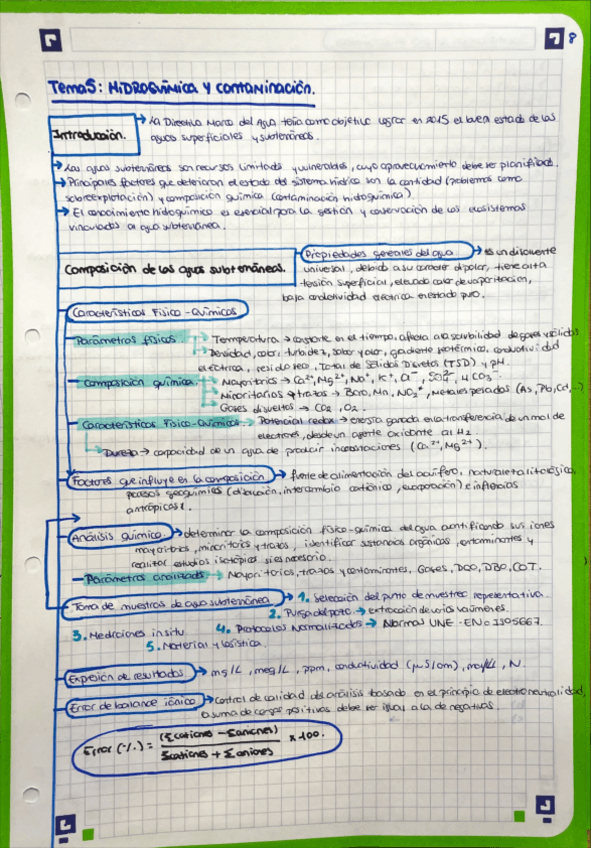 8
Tema 5: Hidroquímica y contaminación.
Introducción. → La Directiva Marco del Agua tenía como objetivo lograr en 2015 el buen estado de las
aguas superficiales y subterráneas.
→ Las aguas subterráneas son recursos limitados y vulnerables, cuyo aprovechamiento debe ser planificado.
→ Principales factores que deterioran el estado del sistema hídrico son la cantidad (problemas como
sobreexplotación) y composición química (contaminación hidroquímica).
→ El conocimiento hidroquímico es esencial para la gestión y conservación de los ecosistemas
vinculados al agua subterránea.
Composición de las aguas subterráneas. Propiedades generales del agua → es un disolvente
universal, debido a su carácter dipolar, tiene alta
tensión superficial, elevado calor de vaporización,
baja conductividad eléctrica en estado puro.
Características Físico-Químicas
Parámetros físicos → Temperatura → constante en el tiempo, afecta a la solubilidad de gases y sólidos
→ Densidad, color, turbidez, sabor y olor, gradiente geotérmico, conductividad
eléctrica, residuo seco, Total de Sólidos Disueltos (TSD) y pH.
Composición química → Mayoritarios → Ca²⁺, Mg²⁺, Na⁺, K⁺, Cl⁻, SO₄²⁻, y CO₃
→ Minoritarios y trazas → Boro, Mn, NO₂⁻, Metales pesados (As, Pb, Cd,...)
→ Gases disueltos → CO₂, O₂.
Características Físico-Químicas → Potencial redox → energía ganada en la transferencia de un mol de
electrones, desde un agente oxidante al H₂.
→ Dureza → capacidad de un agua de producir incrustaciones (Ca²⁺, Mg²⁺).
Factores que influye en la composición → fuente de alimentación del acuífero, naturaleza litológica,
procesos geoquímicos (disolución, intercambio catiónico, evaporación) e influencias
antrópicas.
Análisis químico → determinar la composición físico-química del agua cuantificando sus iones
mayoritarios, minoritarios y trazas, identificar sustancias orgánicas, contaminantes y
realizar estudios isotópicos si es necesario.
Parámetros analizados → Mayoritarios, trazas y contaminantes, Gases, DQO, DBO, COT.
Toma de muestras de agua subterránea → 1. Selección del punto de muestreo representativa.
2. Purga del pozo → extracción de varios volúmenes.
3. Mediciones in situ 4. Protocolos Normalizados → Normas UNE-EN
5. Material y logística.
Expresión de resultados → mg/L, meq/L, ppm, conductividad (μS/cm), mol/L, N.
Error de balance iónico → Control de calidad del análisis basado en el principio de electroneutralidad,
la suma de cargas positivas debe ser igual a la de negativas.
Error (%) = (Σcationes - Σaniones) / Σcationes + Σaniones x 100.